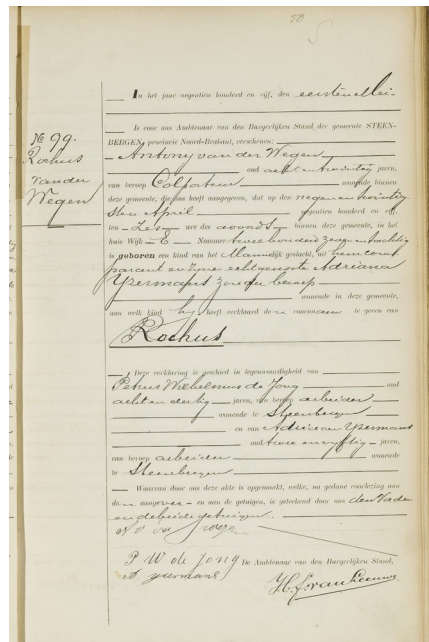 50
In het jaar negentien honderd en vijf, den eersten Mei
Is voor ons Ambtenaar van den Burgerlijken Stand der gemeente STEEN-
BERGEN, provincie Noord-Brabant, verschenen:
No 99.
Rochus
van der
Wegen
Antony van der Wegen
oud acht en twintig jaren,
van beroep Colporteur wonende binnen
deze gemeente, die ons heeft aangegeven, dat op den negen en twintig
sten April negentien honderd en vijf,
ten zes ure des avonds binnen deze gemeente, in het
huis Wijk E Nommer twee honderd zeven en tachtig
is geboren een kind van het Mannelijk geslacht, uit hem com
parant en zijne echtgenoote Adriana
Ypermans zonder beroep
wonende in deze gemeente,
aan welk kind hij heeft verklaard den voornaam te geven van
Rochus
Deze verklaring is geschied in tegenwoordigheid van
Petrus Wilhelmus de Jong oud
acht en dertig jaren, van beroep arbeider
wonende te Steenbergen
en van Adriaan Ypermans
oud twee en vijftig jaren,
van beroep arbeider wonende
te Steenbergen
Waarvan door ons deze akte is opgemaakt, welke, na gedane voorlezing aan
den aangever en aan de getuigen, is geteekend door ons den Vader
en de beide getuigen.
P W de Jong De Ambtenaar van den Burgerlijken Stand,
A ypermans